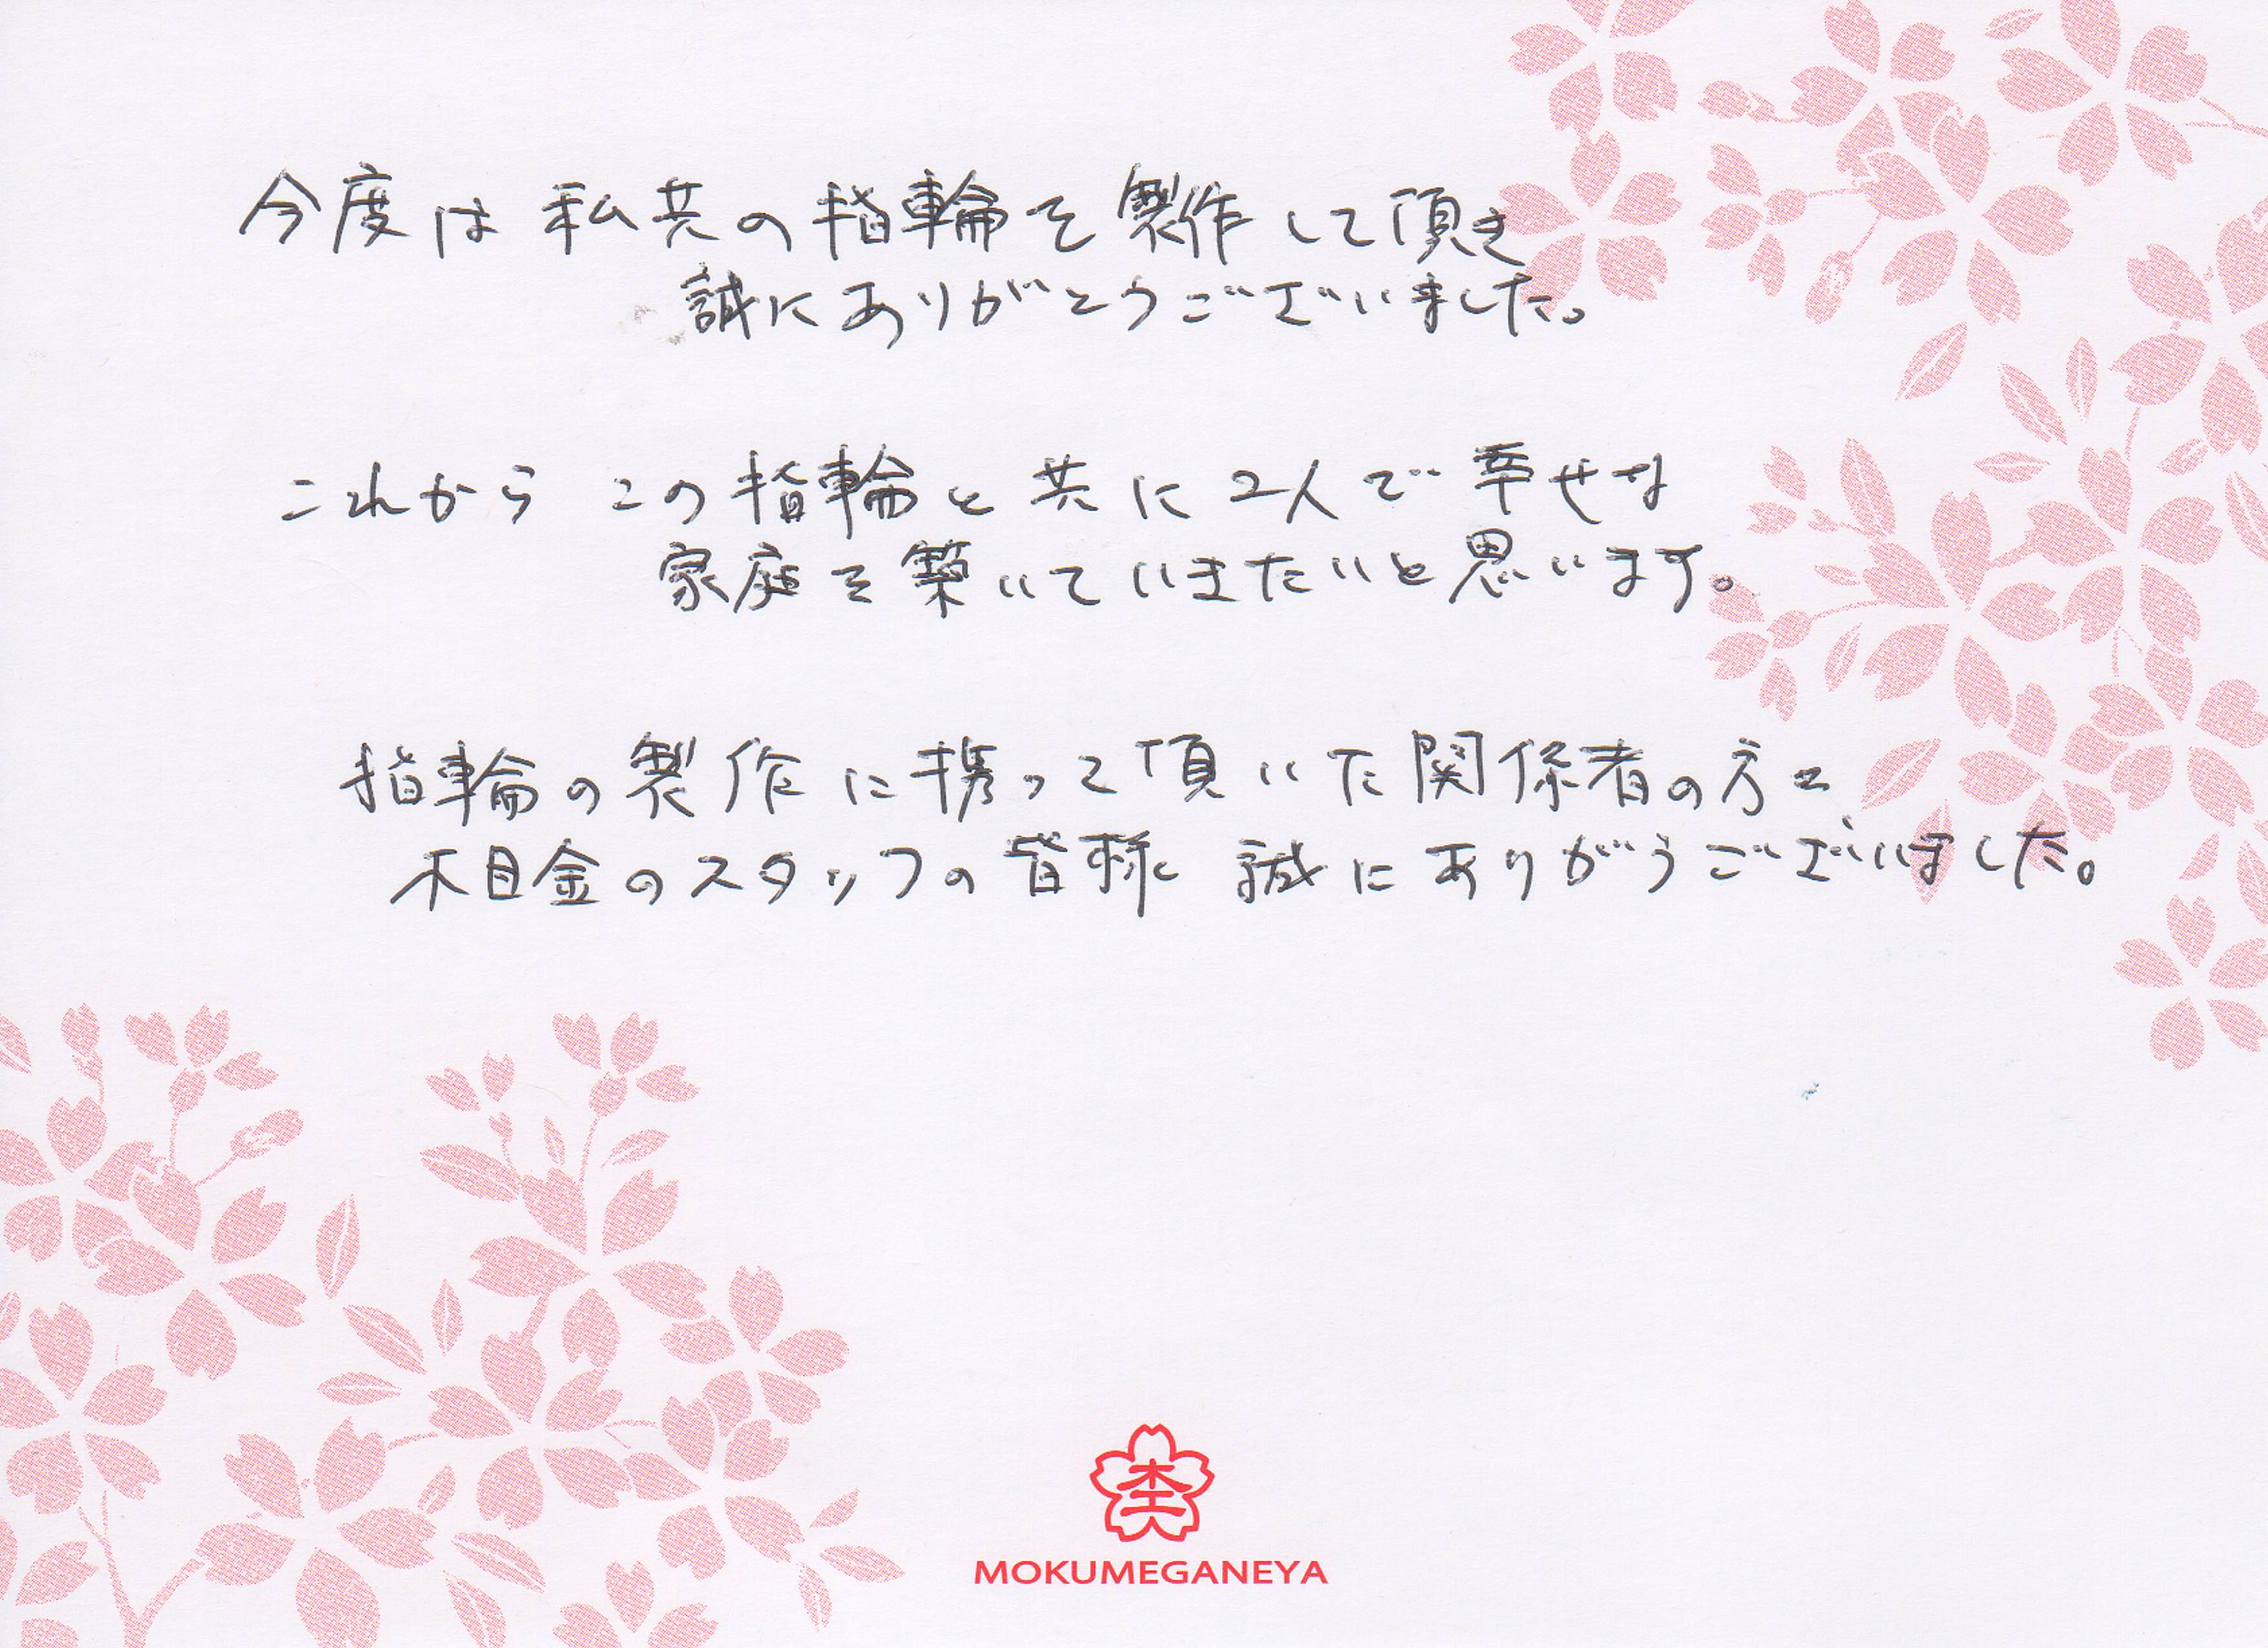 今度は 私共の指輪を製作して頂き
誠にありがとうございました。
これから この指輪と共に2人で幸せな
家庭を築いていきたいと思います。
指輪の製作に携って頂いた関係者の方々、
木目金のスタッフの皆様 誠にありがうございました。
MOKUMEGANEYA